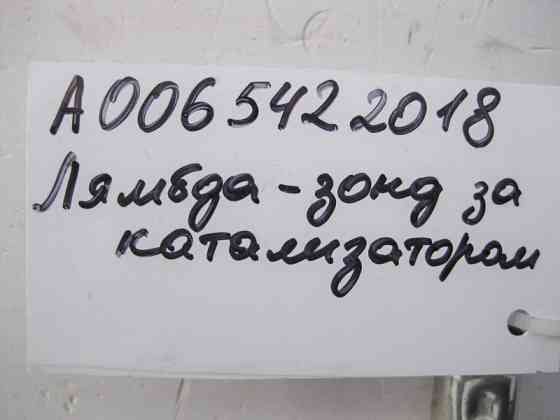 A0065422018
Лямбда-зонд за
катализатором